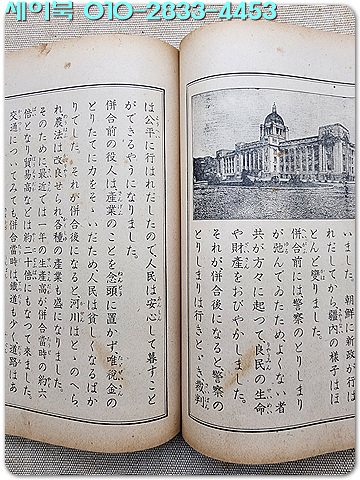 세이북 010-2833-4453
いました。朝鮮に新政が行は
れだしてから疆內の樣子はほ
とんど變りました。
併合前には警察のとりしまり
が弛んでゐたため、よくない者
共が方々に起つて、良民の生命
や財產をおびやかしました。
それが併合後になると、警察の
とりしまりは行きとゞき、裁判
は公平に行はれだしたので、人民は安心して暮すこと
ができるやうになりました。
併合前の役人は、產業のことを念頭に置かず、唯稅金の
とりたてに力をそゝいだため、人民は貧しくなるばか
りでした。それが併合後になると、河川はとゝのへら
れ、農法は改良せられ、各種の產業も盛になりました。
そのために、最近では一年の生產高が併合當時の約六
倍となり、貿易高などは約二十倍にもなつて來ました。
交通についてみても、併合當時は鐵道も少く、道路はあ